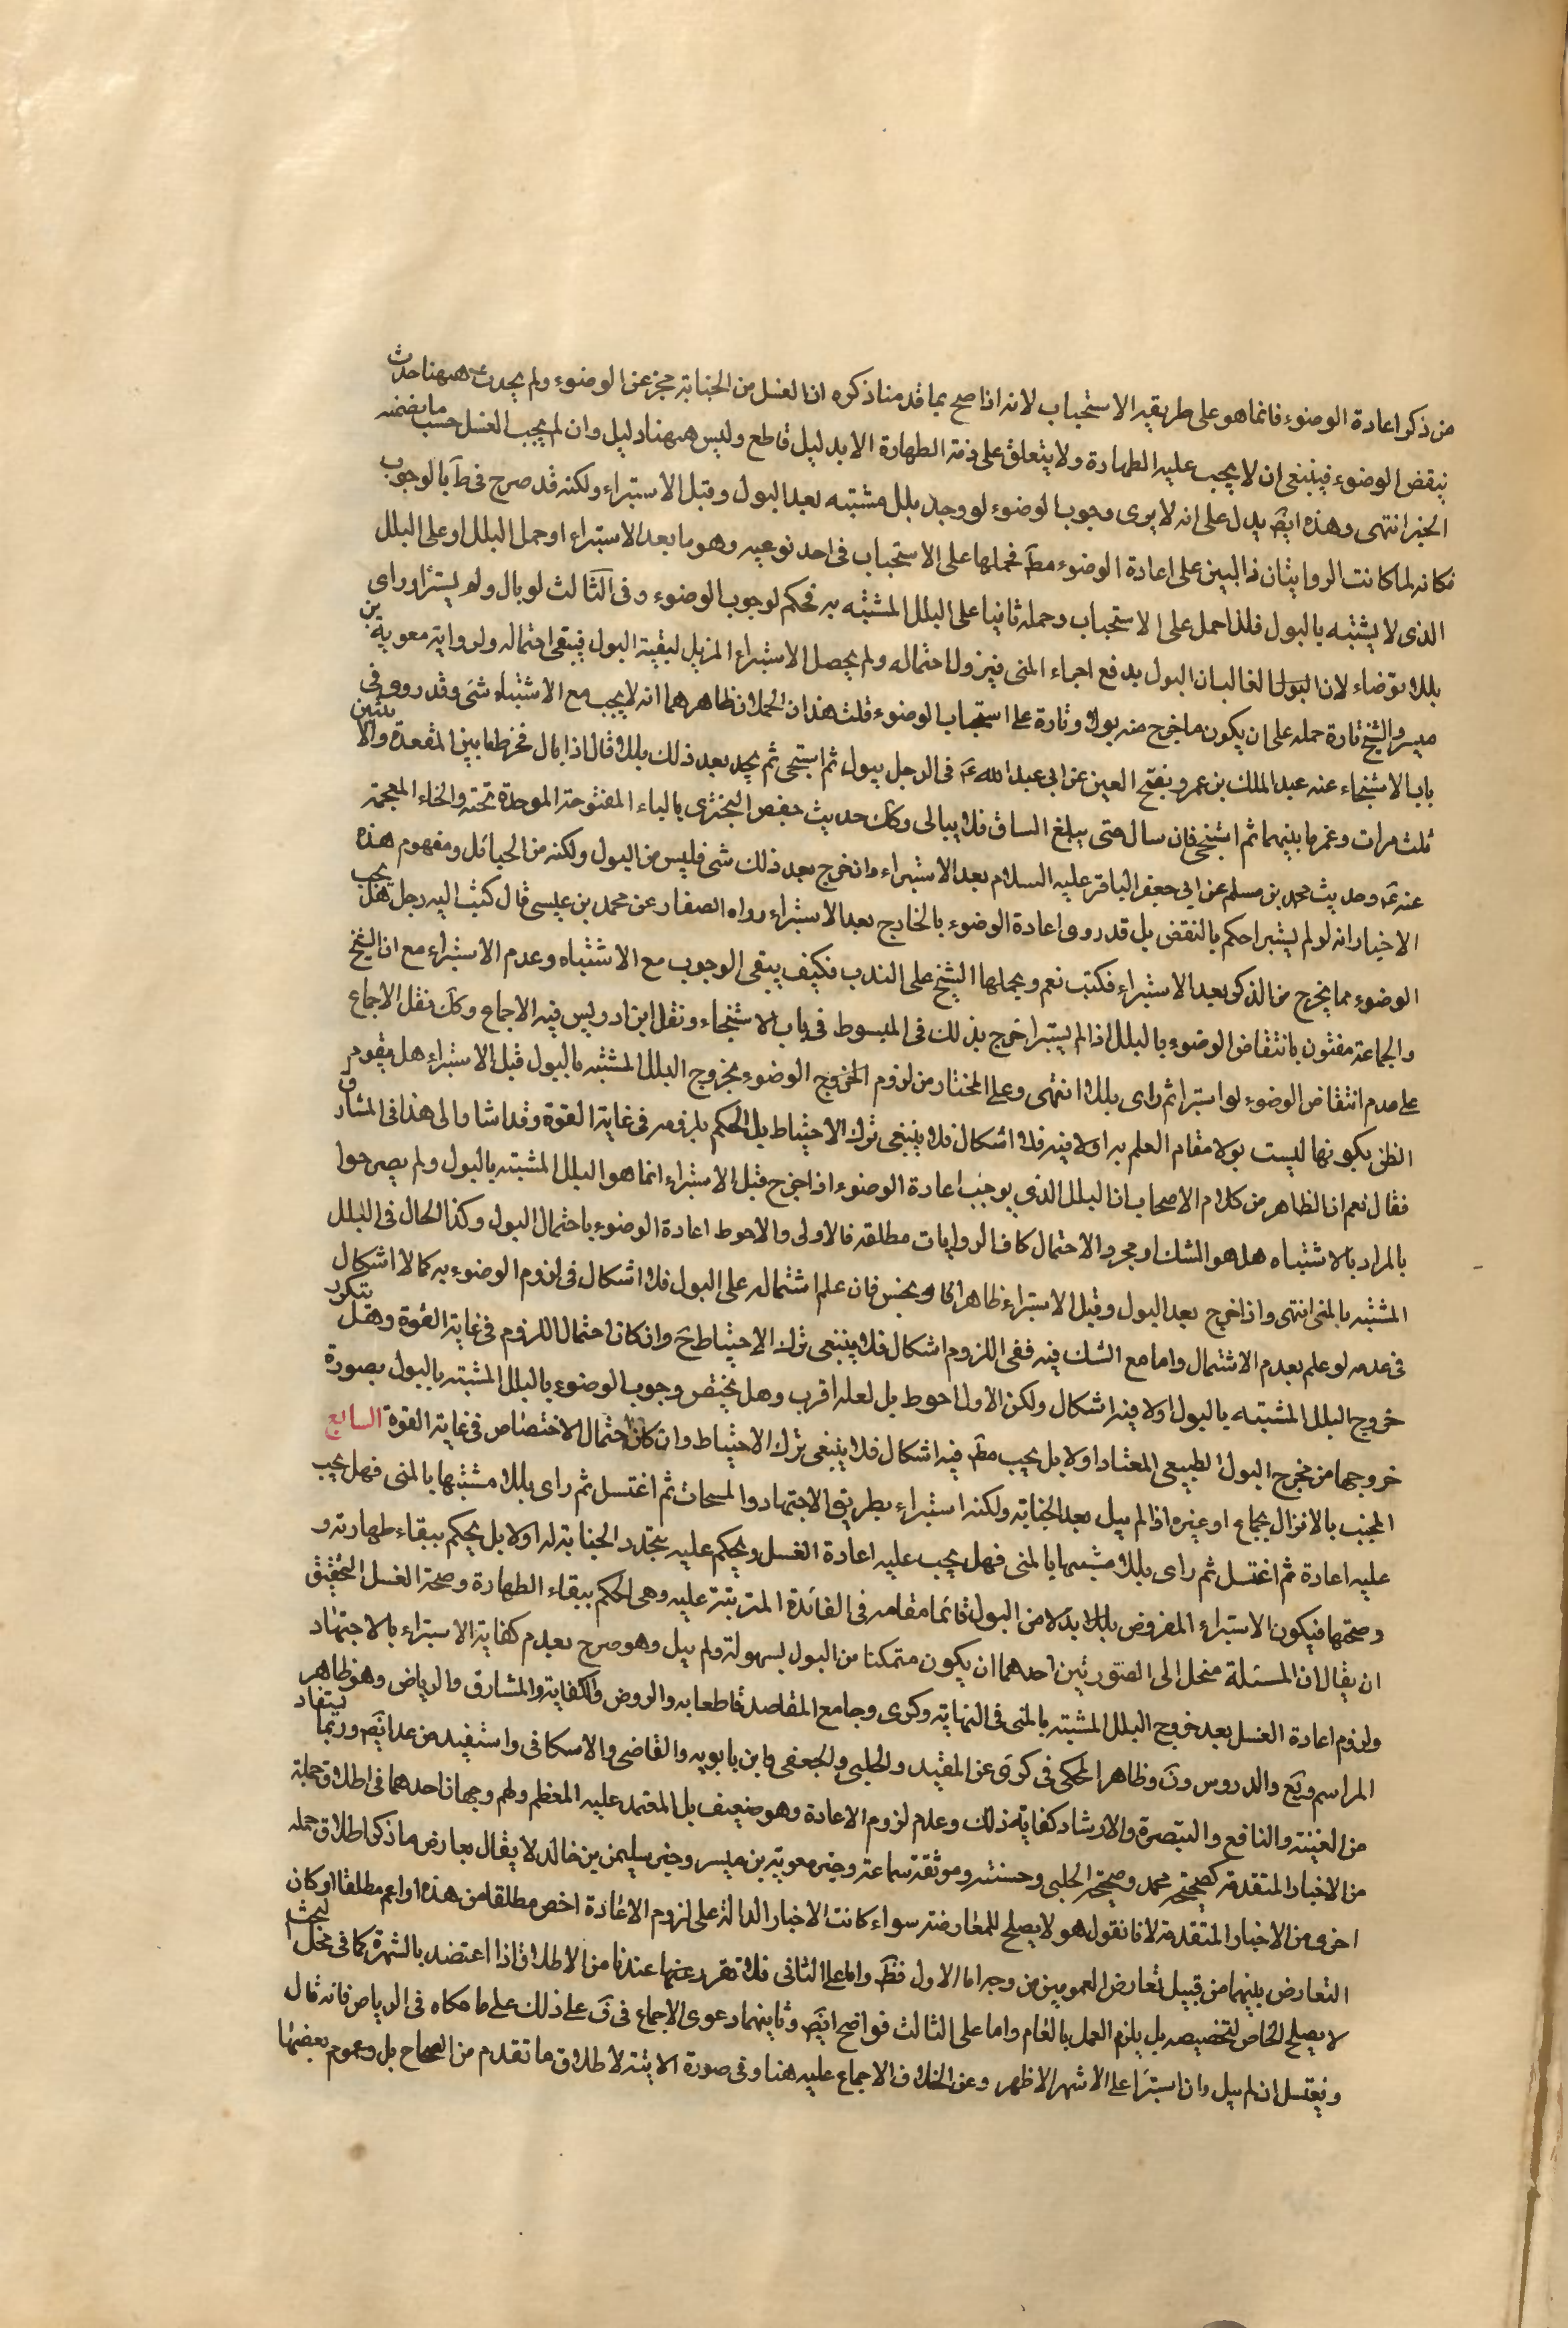 من ذكر اعادة الوضوء فانما هو على طريقه الاستحباب لانه اذا صح بما قدمنا ذكره ان الغسل من الجنابة مجز عن الوضوء ولم يحدث ههنا حدث
ينقض الوضوء فينبغى ان لا يجب عليه الطهارة ولا يتعلق على ذمة الطهارة الا بدليل قاطع وليس ههنا دليل وان لم يجب الغسل حسب ما يضمنه
الخبر انتهى وهذه ايض يدل على انه لا يرى وجوب الوضوء لو وجد بلل مشتبه بعد البول وقبل الاستبراء ولكنه قد صرح فى ط بالوجوب
فكانه لما كانت الروايتان دالتين على اعادة الوضوء مط فحملها على الاستحباب فى احد نوعيه وهو ما بعد الاستبراء او حمل البلل او على البلل
الذى لا يشتبه بالبول فلذا حمل على الاستحباب وحمله ثانيا على البلل المشتبه به فحكم لوجوب الوضوء وفى الثالث لو بال ولم يستبرا وراى
بللا توضاء لان البول الغالب ان البول يدفع اجزاء المنى فيزول احتماله ولم يحصل الاستبراء المزيل لبقية البول فيبقى احتماله ولرواية معوية بن
ميسر والشيخ تارة حمله على ان يكون ما خرج منه بولا وتارة على استحباب الوضوء قلت هذان الحملان ظاهرهما انه لا يجب مع الاشتباه شئ وقد روو فى
باب الاستنجاء عنه عبد الملك بن عمرو بفتح العين عن ابى عبد الله ع فى الرجل يبول ثم استنجى ثم يجد بعد ذلك بللا قال اذا بال فخرط ما بين المقعدة والانثيين
ثلث مرات وغمز ما بينهما ثم استنجى فان سال حتى يبلغ الساق فلا يبالى وكك حديث حفص البخترى بالباء المفتوحة الموحدة تحته والخاء المعجمة
عنه ع وحديث محمد بن مسلم عن ابى جعفر الباقر عليه السلام بعد الاستبراء وان خرج بعد ذلك شئ فليس من البول ولكنه من الحبائل ومفهوم هذه
الاخبار انه لو لم يستبرا حكم بالنقض بل قد روى اعادة الوضوء بالخارج بعد الاستبراء رواه الصفار عن محمد بن عيسى قال كتب اليه رجل هل يجب
الوضوء مما يخرج من الذكر بعد الاستبراء فكتب نعم ويحملها الشيخ على الندب فكيف يبقى الوجوب مع الاشتباه وعدم الاستبراء مع ان الشيخ
والجماعة مفتون بانتقاض الوضوء بالبلل اذا لم يستبرا خرج بذلك فى المبسوط فى باب الاستنجاء ونقل ابن ادريس فيه الاجماع وكك نقل الاجماع
على عدم انتقاض الوضوء لو استبرا ثم راى بللا انتهى وعلى المختار من لزوم الخروج الوضوء بخروج البلل المشتبه بالبول قبل الاستبراء هل يقوم
الظن بكونها ليست بولا مقام العلم به اولا فيه فلا اشكال فلا ينبغى ترك الاحتياط بل الحكم بلزومه فى غاية القوة وقد اشار الى هذا فى المشارق
فقال نعم ان الظاهر من كلام الاصحاب ان البلل الذى يوجب اعادة الوضوء اذا خرج قبل الاستبراء انما هو البلل المشتبه بالبول ولم يصرحوا
بالمراد بالاشتباه هل هو الشك او مجرد الاحتمال كان الروايات مطلقه فالاولى والاحوط اعادة الوضوء باحتمال البول وكذا الحال فى البلل
المشتبه بالمنى انتهى واذا خرج بعد البول وقبل الاستبراء ظاهرا كان او نجس فان علم اشتماله على البول فلا اشكال فى لزوم الوضوء به كما لا اشكال
فى عدمه لو علم بعدم الاشتمال واما مع الشك فيه ففى اللزوم اشكال فلا ينبغى ترك الاحتياط ح وان كان احتمال اللزوم فى غاية القوة وهل يتكرر
خروج البلل المشتبه بالبول اولا فيه اشكال ولكن الاول احوط بل لعله اقرب وهل يختص وجوب الوضوء بالبلل المشتبه بالبول بصورة
خروجها من مخرج البول الطبيعى المعتاد اولا بل يجب مط فيه اشكال فلا ينبغى ترك الاحتياط وان كان احتمال الاختصاص فى غاية القوة السابع
المجنب بالانزال بجماع او غيره اذا لم يبل بعد الجنابة ولكنه استبراء بطريق الاجتهاد والمسحات ثم اغتسل ثم راى بللا مشتبها بالمنى فهل يجب
عليه اعادة ثم اغتسل ثم راى بللا مشتبها بالمنى فهل يجب عليه اعادة الغسل ويحكم عليه بتجدد الجنابة له اولا بل يحكم ببقاء طهارته و
وصحتها فيكون الاستبراء المفروض بللا بدلا من البول قائما مقامه فى الفائدة المترتبة عليه وهى الحكم ببقاء الطهارة وصحة الغسل التحقيق
ان يقال ان المسئلة منحل الى الصورتين احدهما ان يكون متمكنا من البول بسهولة ولم يبل وهو صرح بعدم كفاية الاستبراء بالاجتهاد
ولزوم اعادة الغسل بعد خروج البلل المشتبه بالمنى فى النهاية وكرى وجامع المقاصد قاطعا به والروض والكفاية والمشارق والرياض وهو ظاهر
المراسم ويع والدروس ون وظاهر المحكى فى كرى عن المفيد والحلبى والجعفى وابن بابويه والقاضى والاسكافى واستفيد من عد ايض وربما يستفاد
من الغنية والنافع والتبصرة والارشاد كفاية ذلك وعدم لزوم الاعادة وهو ضعيف بل المعتمد عليه المعظم ولهم وجهان احدهما فى اطلاق جملة
من الاخبار المتقدمة كصحيحة محمد وصحيحة الحلبى وحسنته وموثقة سماعة وخبر معوية بن ميسر وخبر سليمن بن خالد لا يقال يعارض ما ذكر اطلاق جملة
اخرى من الاخبار المتقدمة لانا نقول هو لا يصلح للمعارضة سواء كانت الاخبار الدالة على لزوم الاعادة اخص مطلقا من هذه او اعم مطلقا او كان
التعارض بينهما من قبيل تعارض العمومين من وجه اما الاول فظ واما على الثانى فلا تقرر عندنا من الاطلاق اذا اعتضد بالشهرة كما فى محل البحث
لا يصلح الخاص لتخصيصه بل يلزم العمل بالعام واما على الثالث فواضح ايض وثانيهما دعوى الاجماع فى ف على ذلك على ما حكاه فى الرياض فانه قال
ويغتسل ان لم يبل وان استبرا على الاشهر الاظهر وعن الخلاف الاجماع عليه هنا وفى صورة الاتية لاطلاق ما تقدم من الصحاح بل وعموم بعضها